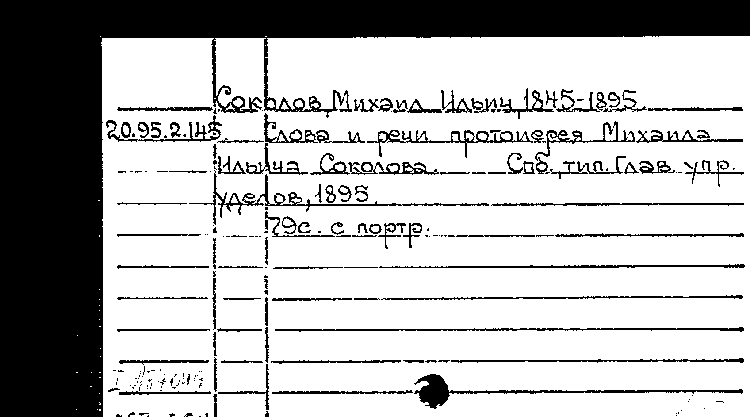 Соколов, Михаил Ильич, 1845-1895
20.95.2.145. Слова и речи протоиерея Михаила
Ильича Соколова. Спб., тип. Глав. упр.
уделов, 1895.
79с. с портр.